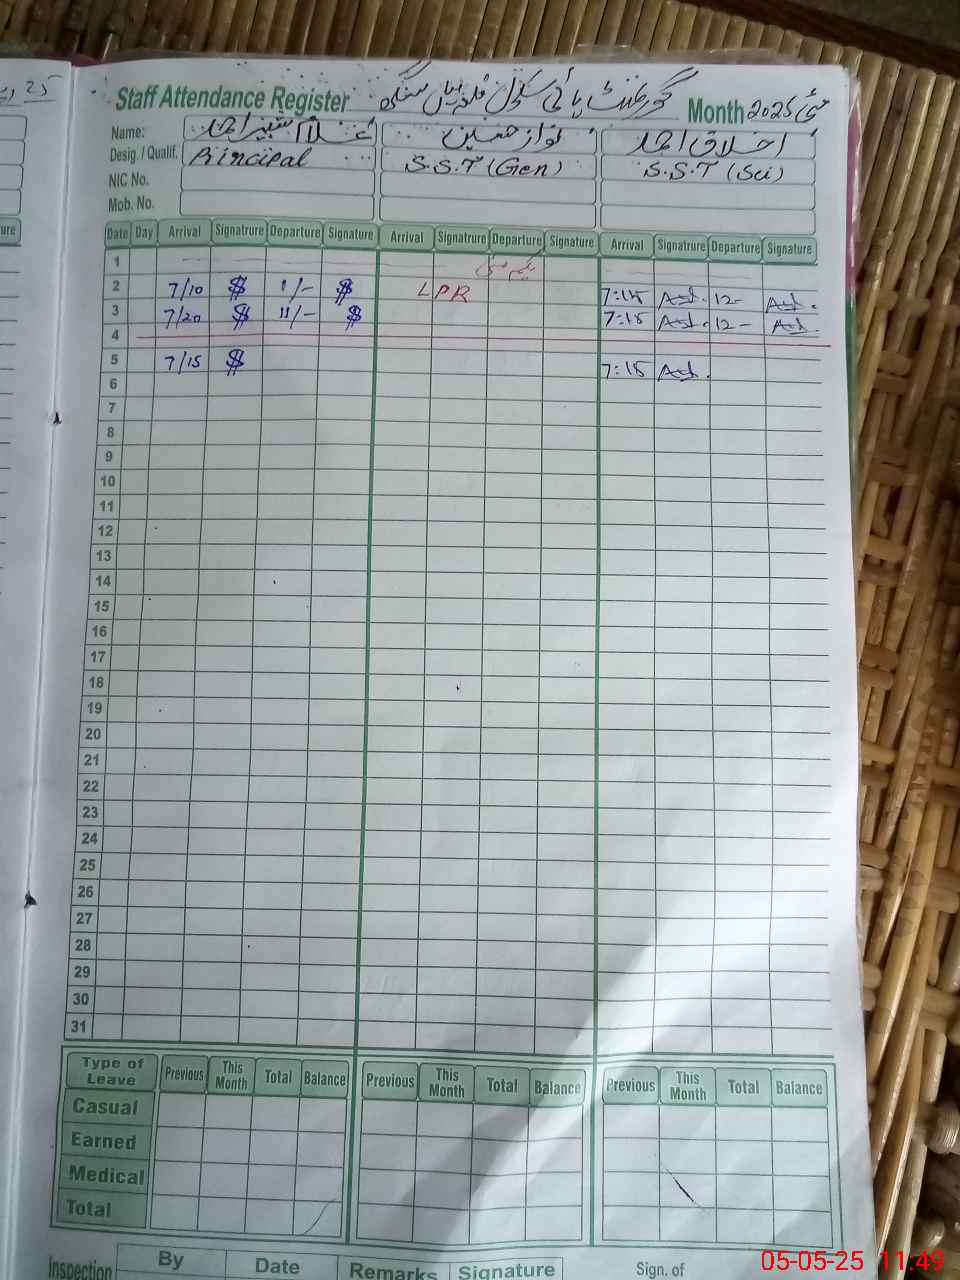 25
Staff Attendance Register گورنمنٹ ہائی سکول قلعہ میاں سنگھ Month مئی 2025
Name: غلام شبیر احمد نواز حسین اخلاق احمد
Desig. / Qualif. Principal S.S.T (Gen) S.S.T (Sci)
NIC No.
Mob. No.
ure Date Day Arrival Signatrure Departure Signature Arrival Signatrure Departure Signature Arrival Signatrure Departure Signature
1
2 7/10 $ 11/- $ LPR 7:15 12-
3 7/20 $ 11/- $ 7:15 12-
4
5 7/15 $ 7:15
6
7
8
9
10
11
12
13
14
15
16
17
18
19
20
21
22
23
24
25
26
27
28
29
30
31
Type of Leave Previous This Month Total Balance Previous This Month Total Balance Previous This Month Total Balance
Casual
Earned
Medical
Total
Inspection By Date Remarks Signature Sign. of
05-05-25 11:49